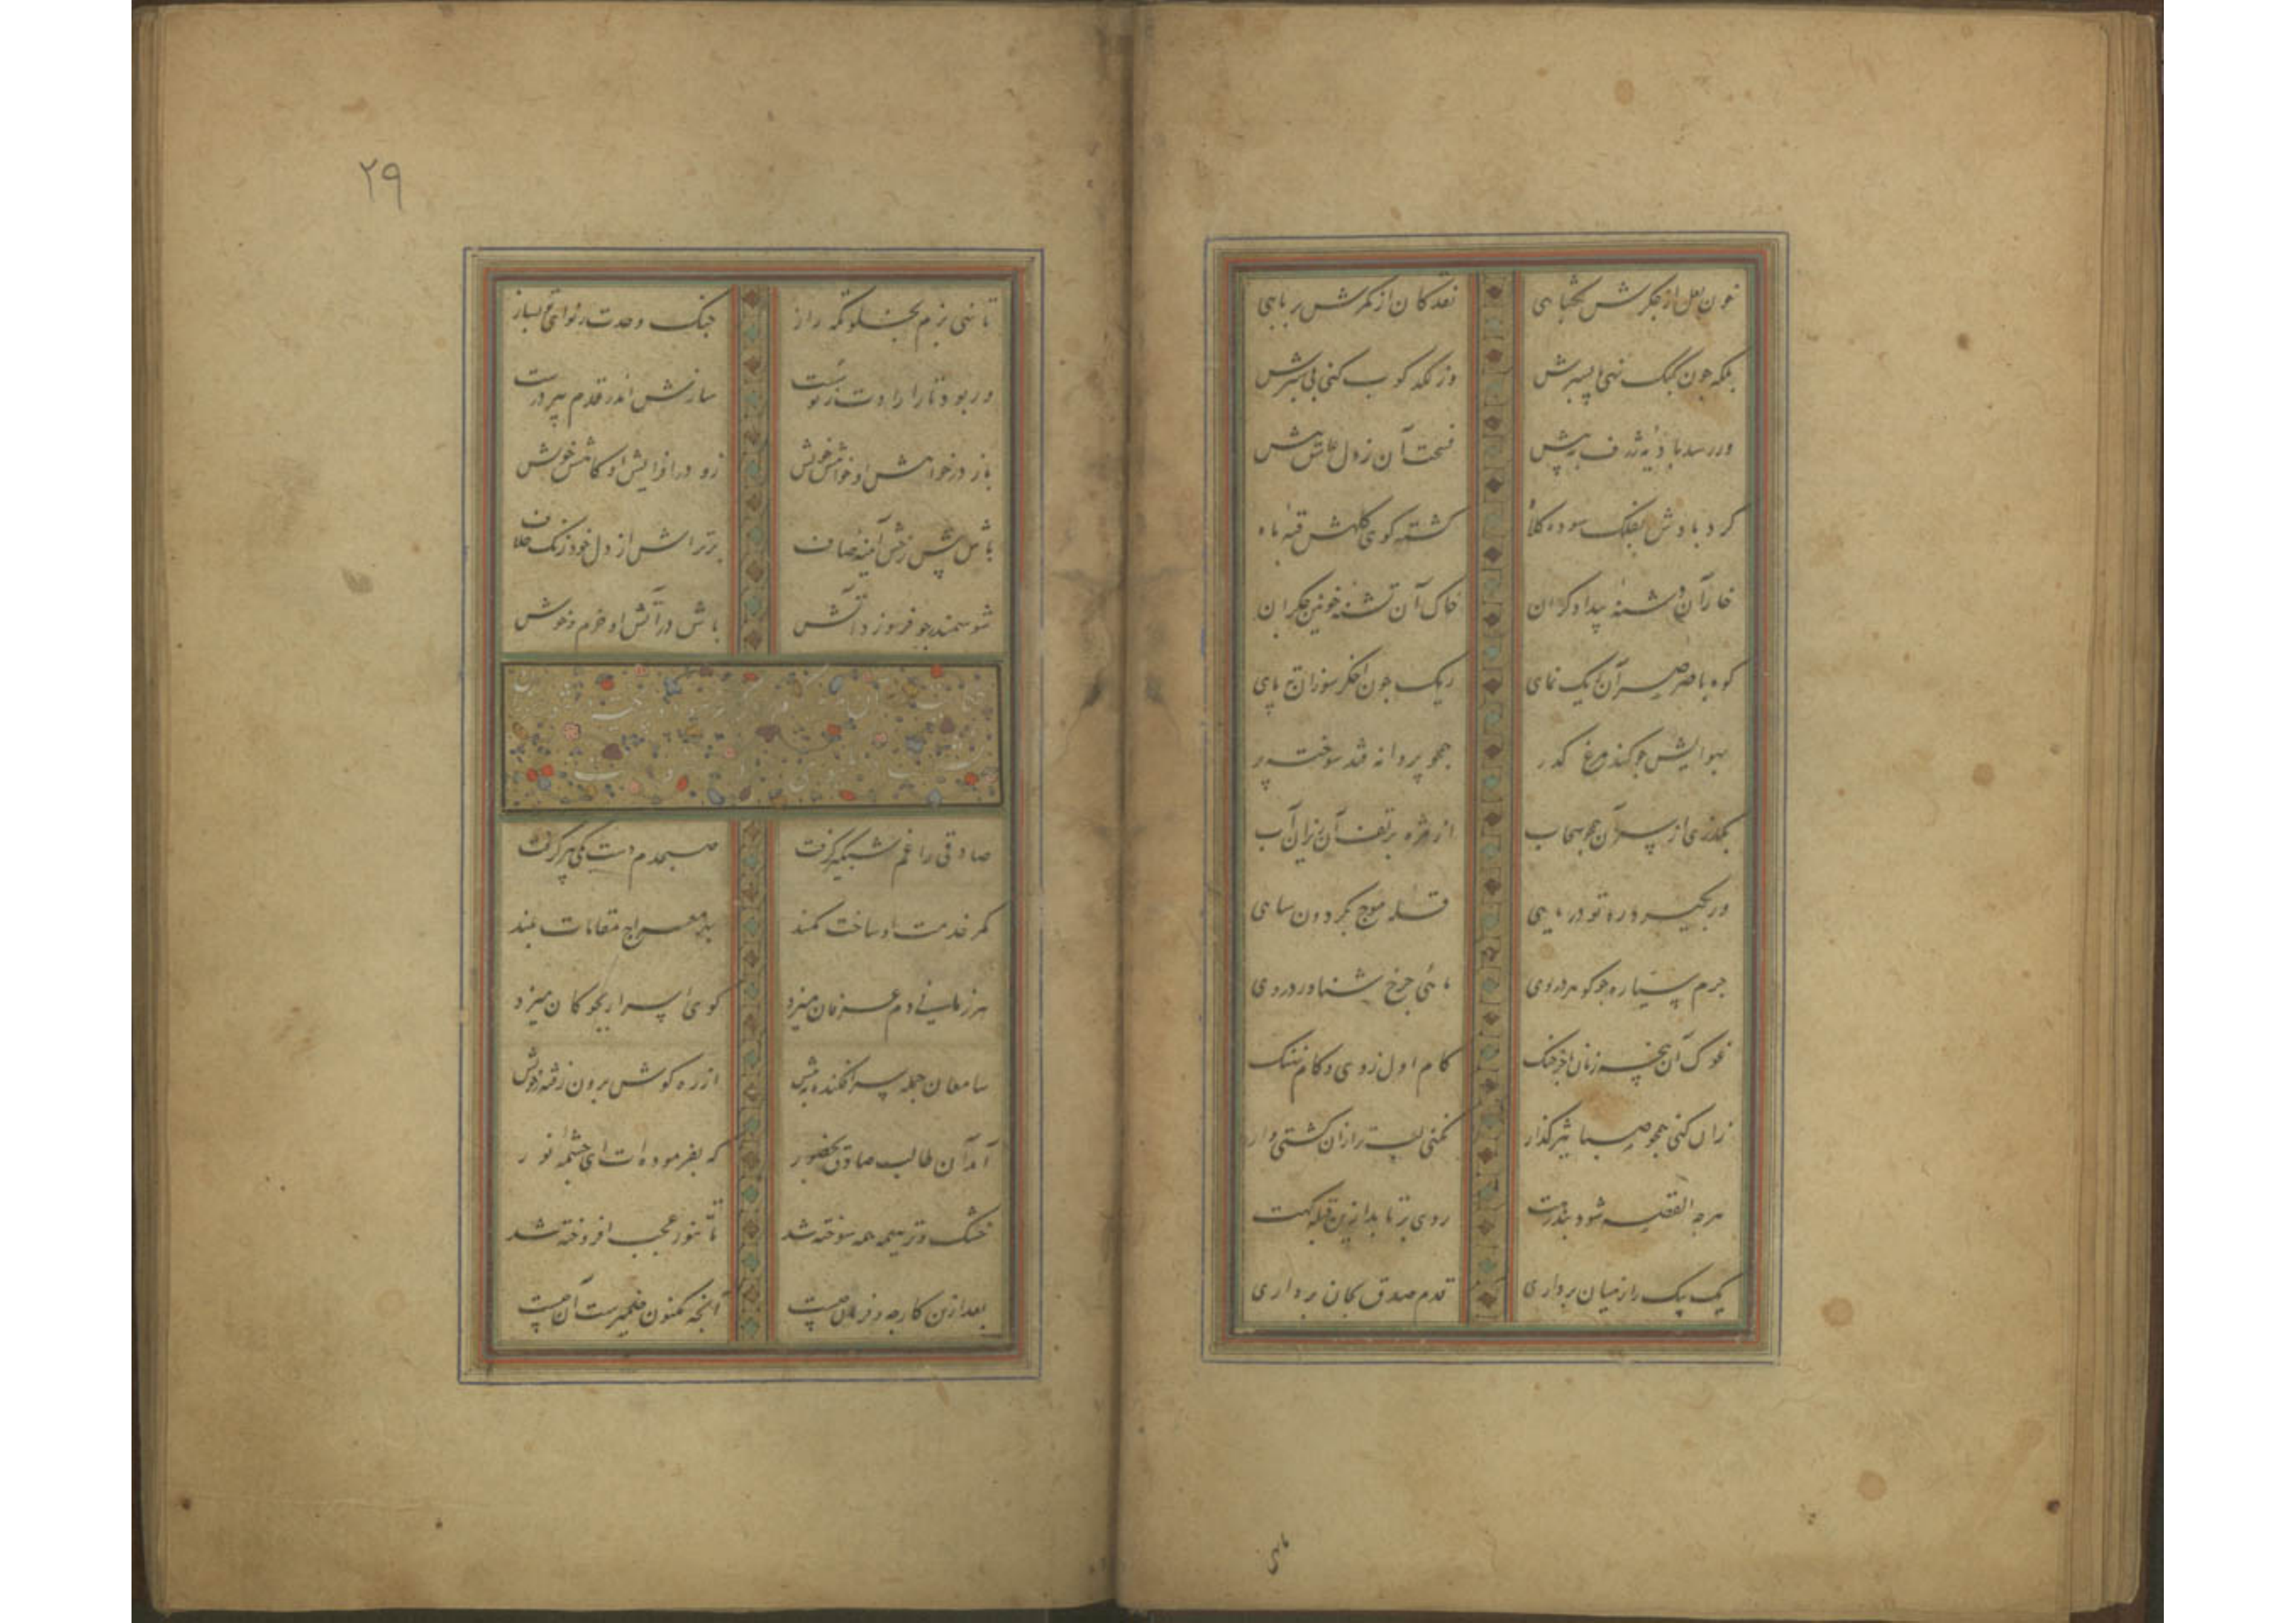 خون لعل از جکرش بکشایی نقد کان از کمرش بربایی
بلکه چون کبک نهی پا بسرش وز لکد کوب کنی پی سپرش
ور رسد بادیه ژرف به پیش فسحت آن ز دل عاشق بیش
کرد بادش بفلک سوده کلاه کشته کوی کلهش قبه ماه
خار آن دشنه بیدادکران خاک آن تشنه خونین جکران
کوه با صرصر آن ریک نمای ریک چون اخکر سوزان ته پای
بهوایش چو کند مرغ کذر همچو پروانه فتد سوخته پر
بکذری از سر آن همچو سحاب از مژه بر تف آن ریزان آب
ور بکیرد ره تو دریایی قله موج بکردون سایی
جرم سیاره چو کوهر در وی ماهی چرخ شناور در وی
غوک آن پنجه زنان با خرچنک کام اول ز وی و کام نهنک
زان کنی همچو صبا تیز کذار نکنی لب تر ازان کشتی وار
هرچه القصه شود بند رهت روی برتابد ازین قبله کهت
یک بیک را ز میان برداری قدم صدق بجان برداری
تا
۲۹
تا نهی بزم بخلوتکه راز چنک وحدت بنوای تو بساز
ور بود تار ارادت ز تو سست سازش اندر قدم پیر درست
باز در خواهش او خواهش خویش زو در افزایش او کاهش خویش
باش پیش رخش آیینه صاف برتراش از دل خود زنک خلاف
شو سمندر چو فروزد آتش باش در آتش او خرم و خوش
صادقی را غم شبکیر کرفت صبحدم دست یکی پیر کرفت
کمر خدمت او ساخت کمند بهر معراج مقامات بلند
هر زمانی دم عرفان میزد کوی اسرار بچوکان میزد
سامعان جمله سر افکنده به پیش از ره کوش برون رفته ز خویش
آمد آن طالب صادق بحضور که بفرموده ات ای چشمه نور
خشک و تر هیمه همه سوخته شد تا تنور عجب افروخته شد
بعد ازین کار چه و فرمان چیست آنچه مکنون ضمیرست آن چیست